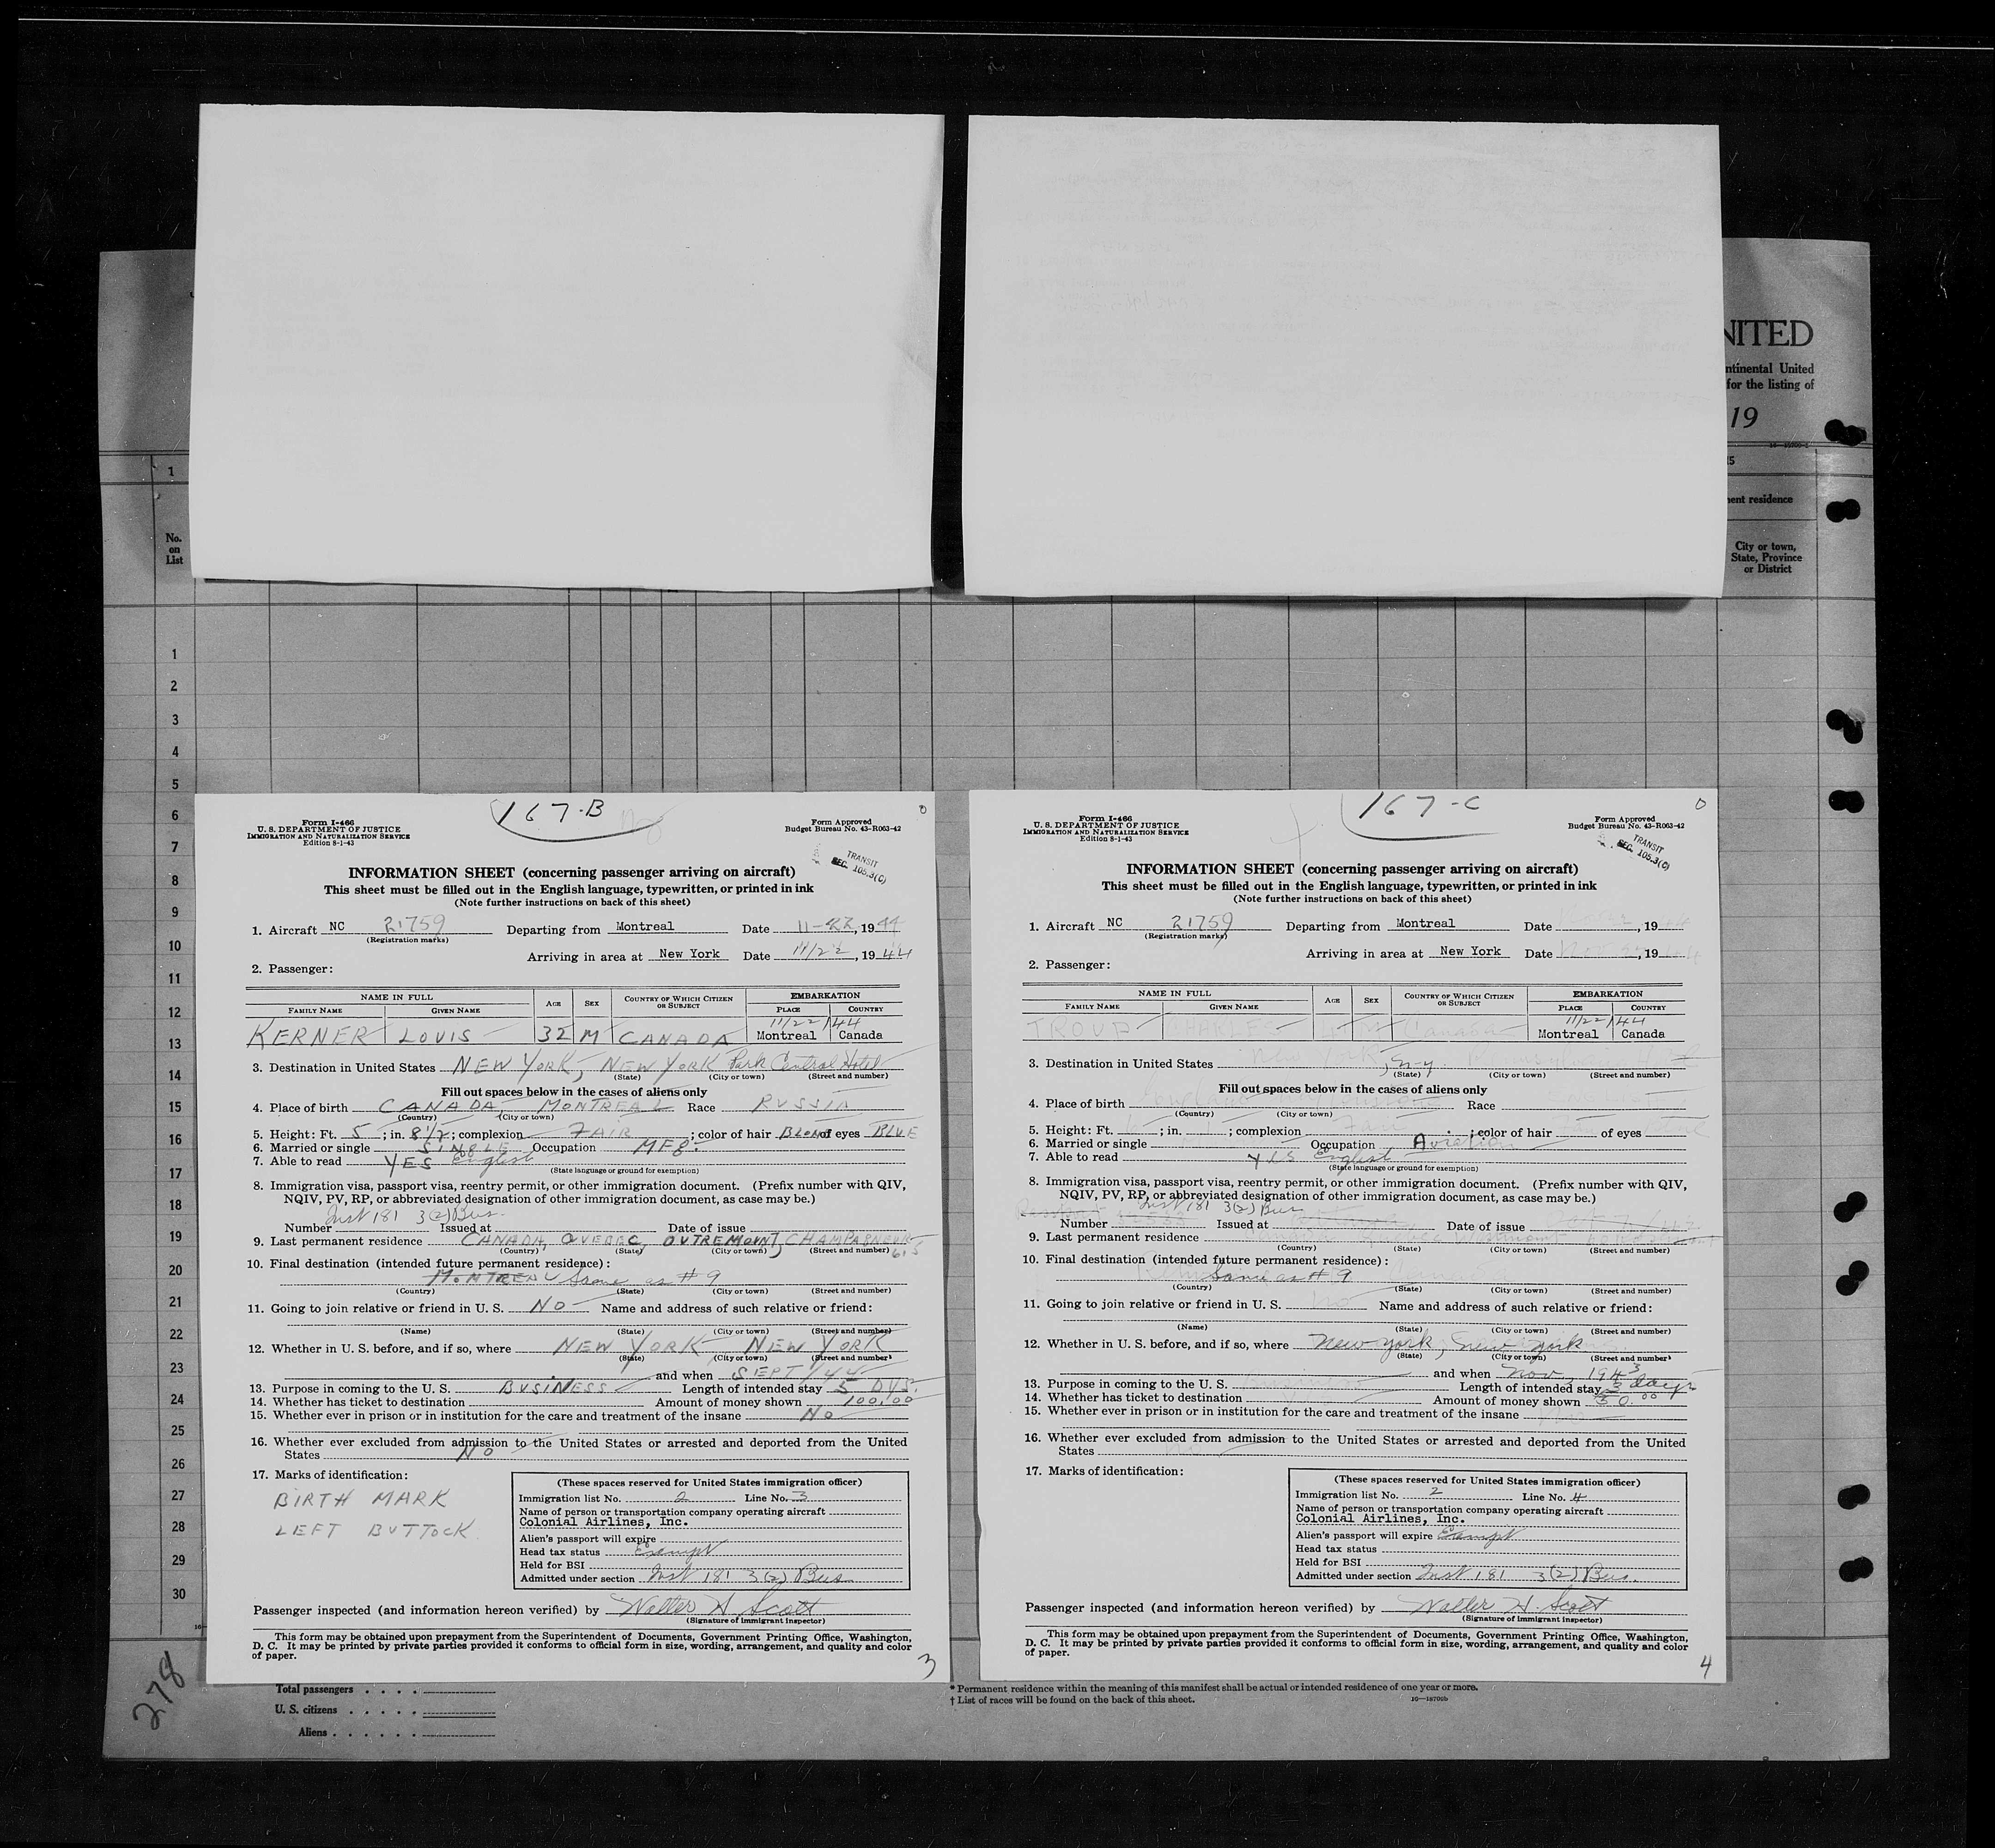 NITED
ntinental United
for the listing of
19
1
15
ent residence
No.
on
List
City or town,
State, Province
or District
1
2
3
4
5
6
7
8
9
10
11
12
13
14
15
16
17
18
19
20
21
22
23
24
25
26
27
28
29
30
278
167-B
Form I-466
U. S. DEPARTMENT OF JUSTICE
IMMIGRATION AND NATURALIZATION SERVICE
Edition 8-1-43
Form Approved
Budget Bureau No. 43-R063-42
TRANSIT
SEC. 105.3(C)
INFORMATION SHEET (concerning passenger arriving on aircraft)
This sheet must be filled out in the English language, typewritten, or printed in ink
(Note further instructions on back of this sheet)
1. Aircraft NC 21759 Departing from Montreal Date 11-22, 1944
(Registration marks)
Arriving in area at New York Date 11/22, 1944
2. Passenger:
NAME IN FULL AGE SEX COUNTRY OF WHICH CITIZEN OR SUBJECT EMBARKATION
FAMILY NAME GIVEN NAME PLACE COUNTRY
11/22/44
KERNER LOUIS 32 M CANADA Montreal Canada
3. Destination in United States NEW YORK, NEW YORK Park Central Hotel
(State) (City or town) (Street and number)
Fill out spaces below in the cases of aliens only
4. Place of birth CANADA, MONTREAL Race RUSSIA
(Country) (City or town)
5. Height: Ft. 5; in. 8 1/2; complexion FAIR; color of hair BLOND of eyes BLUE
6. Married or single SINGLE Occupation MFG.
7. Able to read YES English
(State language or ground for exemption)
8. Immigration visa, passport visa, reentry permit, or other immigration document. (Prefix number with QIV,
NQIV, PV, RP, or abbreviated designation of other immigration document, as case may be.)
Inst 181 3(2) Bus.
Number Issued at Date of issue
9. Last permanent residence CANADA, QUEBEC, OUTREMOUNT, CHAMPAGNEUR 615
(Country) (State) (City or town) (Street and number)
10. Final destination (intended future permanent residence):
MONTREAL Same as #9
(Country) (State) (City or town) (Street and number)
11. Going to join relative or friend in U. S. NO Name and address of such relative or friend:
(Name) (State) (City or town) (Street and number)
12. Whether in U. S. before, and if so, where NEW YORK NEW YORK
(State) (City or town) (Street and number)
and when SEPT/44
13. Purpose in coming to the U. S. BUSINESS Length of intended stay 5 DYS.
14. Whether has ticket to destination Amount of money shown 100.00
15. Whether ever in prison or in institution for the care and treatment of the insane NO
16. Whether ever excluded from admission to the United States or arrested and deported from the United
States NO
17. Marks of identification:
BIRTH MARK
LEFT BUTTOCK
(These spaces reserved for United States immigration officer)
Immigration list No. 2 Line No. 3
Name of person or transportation company operating aircraft
Colonial Airlines, Inc.
Alien's passport will expire
Head tax status Exempt
Held for BSI
Admitted under section Inst 181 3(2) Bus
Passenger inspected (and information hereon verified) by Walter H. Scott
(Signature of immigrant inspector)
This form may be obtained upon prepayment from the Superintendent of Documents, Government Printing Office, Washington,
D. C. It may be printed by private parties provided it conforms to official form in size, wording, arrangement, and quality and color
of paper.
3
167-C
Form I-466
U. S. DEPARTMENT OF JUSTICE
IMMIGRATION AND NATURALIZATION SERVICE
Edition 8-1-43
Form Approved
Budget Bureau No. 43-R063-42
TRANSIT
SEC. 105.3(C)
INFORMATION SHEET (concerning passenger arriving on aircraft)
This sheet must be filled out in the English language, typewritten, or printed in ink
(Note further instructions on back of this sheet)
1. Aircraft NC 21759 Departing from Montreal Date , 19
(Registration marks)
Arriving in area at New York Date , 19
2. Passenger:
NAME IN FULL AGE SEX COUNTRY OF WHICH CITIZEN OR SUBJECT EMBARKATION
FAMILY NAME GIVEN NAME PLACE COUNTRY
11/22/44
TROUP Canada Montreal Canada
3. Destination in United States , N-Y.
(State) (City or town) (Street and number)
Fill out spaces below in the cases of aliens only
4. Place of birth Race
(Country) (City or town)
5. Height: Ft. ; in. ; complexion Fair; color of hair of eyes
6. Married or single Occupation Aviation
7. Able to read YES English
(State language or ground for exemption)
8. Immigration visa, passport visa, reentry permit, or other immigration document. (Prefix number with QIV,
NQIV, PV, RP, or abbreviated designation of other immigration document, as case may be.)
Inst 181 3(2) Bus
Number Issued at Date of issue
9. Last permanent residence
(Country) (State) (City or town) (Street and number)
10. Final destination (intended future permanent residence):
Same as #9
(Country) (State) (City or town) (Street and number)
11. Going to join relative or friend in U. S. No Name and address of such relative or friend:
(Name) (State) (City or town) (Street and number)
12. Whether in U. S. before, and if so, where New York, New York
(State) (City or town) (Street and number)
and when Nov, 1943
13. Purpose in coming to the U. S. Length of intended stay 3 days
14. Whether has ticket to destination Amount of money shown 50.00
15. Whether ever in prison or in institution for the care and treatment of the insane
16. Whether ever excluded from admission to the United States or arrested and deported from the United
States
17. Marks of identification:
(These spaces reserved for United States immigration officer)
Immigration list No. 2 Line No. 4
Name of person or transportation company operating aircraft
Colonial Airlines, Inc.
Alien's passport will expire Exempt
Head tax status
Held for BSI
Admitted under section Inst 181 3(2) Bus.
Passenger inspected (and information hereon verified) by Walter H. Scott
(Signature of immigrant inspector)
This form may be obtained upon prepayment from the Superintendent of Documents, Government Printing Office, Washington,
D. C. It may be printed by private parties provided it conforms to official form in size, wording, arrangement, and quality and color
of paper.
4
Total passengers
U. S. citizens
Aliens
* Permanent residence within the meaning of this manifest shall be actual or intended residence of one year or more.
† List of races will be found on the back of this sheet.